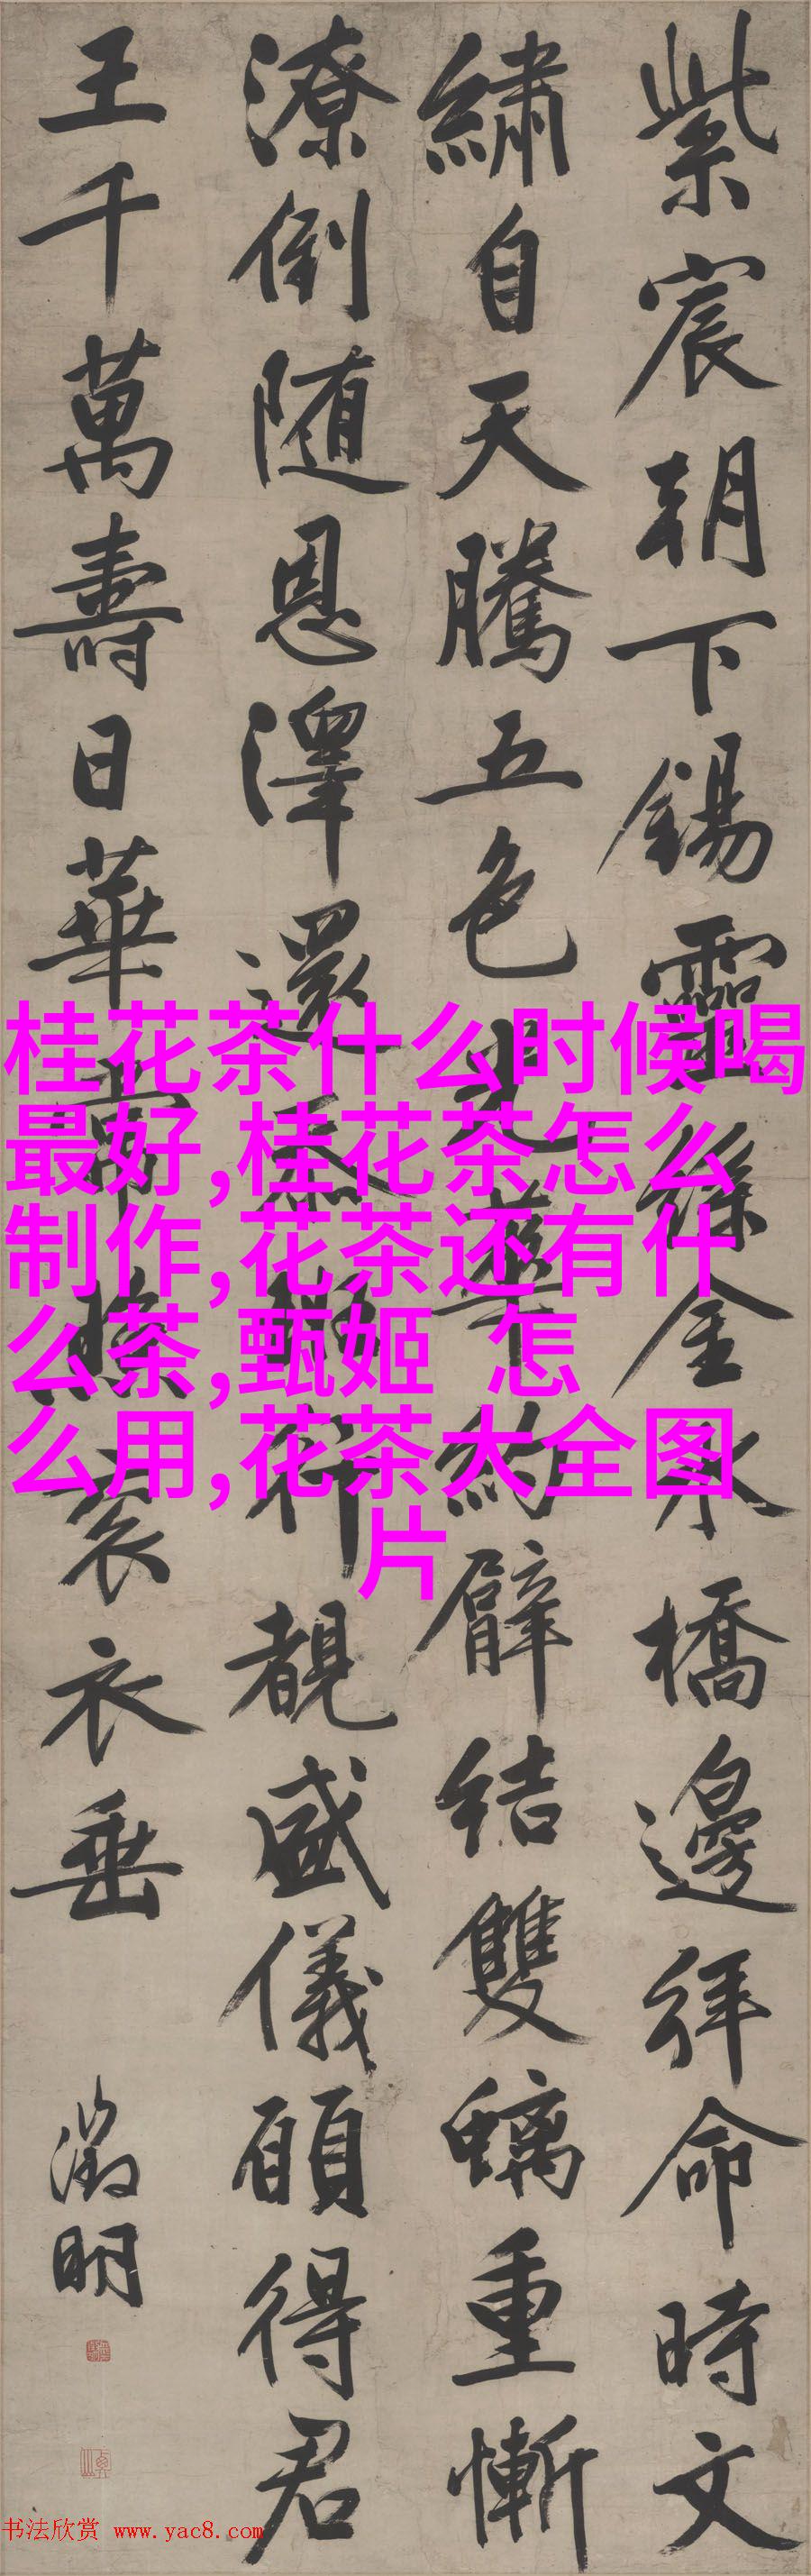 紫宸朝下錫靈絲金水橋邊拜命時文
繡自天騰五色光華約臂結雙螭重慚
潦倒随恩澤還忝行覩盛儀願得君
王千萬壽日華常照袞衣垂
徵明
桂花茶什么时候喝
最好,桂花茶怎么
制作,花茶还有什
么茶,甄姬 怎
么用,花茶大全图
片
书法欣赏 www.yac8.com